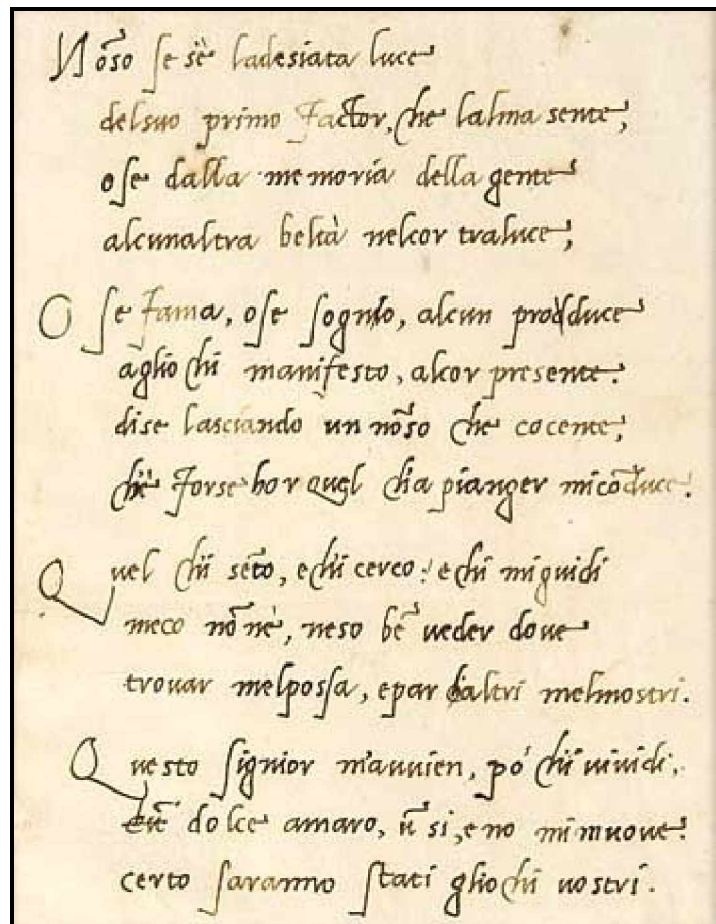 Nõso se sè ladesiata luce
delsuo primo factor, che lalma sente,
ose dalla memoria della gente
alcunaltra beltà nelcor traluce,
O se fama, ose sognio, alcun prodduce
aglio chi manifesto, alcor presente.
dise lasciando un nõso che cocente,
che forse hor quel cha pianger micõduce.
Quel chi sẽto, echi cerco: echi miguidi
meco nõ nè, neso bẽ ueder doue
trouar melpossa, epar daltri melmostri.
Questo signior mauuien, po' chi uiuidi,
dolce amaro, ũ si, eno mi muoue:
certo saranno stati gliochi uostri.